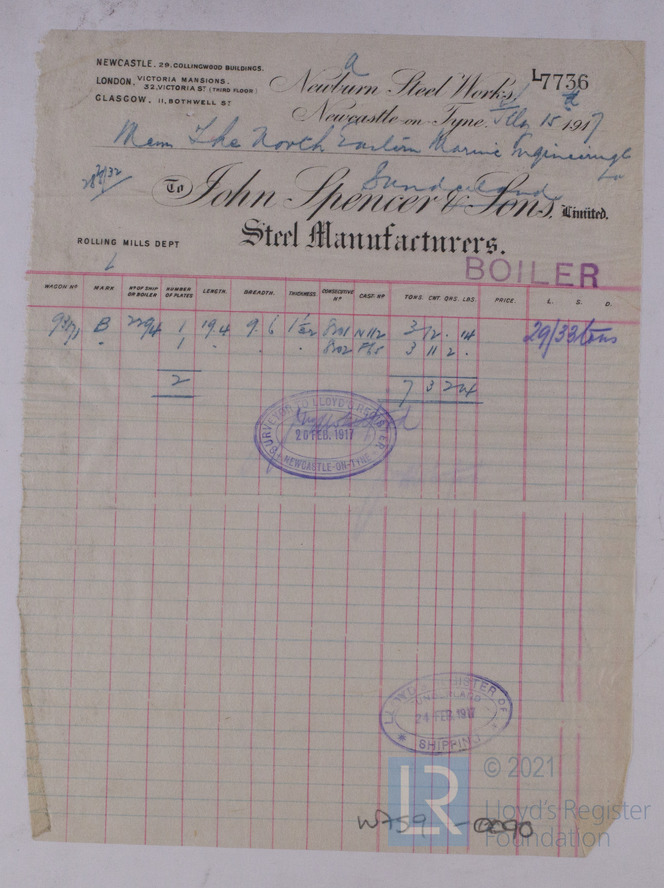 NEWCASTLE. 29. COLLINGWOOD BUILDINGS.
LONDON. VICTORIA MANSIONS. 32, VICTORIA ST (THIRD FLOOR)
GLASGOW. 11, BOTHWELL ST
a
Newburn Steel Works, L7736
Newcastle-on-Tyne, 15 1917
The North Eastern Marine Engineering Co
Sunderland
To John Spencer & Sons, Limited.
Steel Manufacturers.
ROLLING MILLS DEPT
BOILER
WAGON No MARK No OF SHIP OR BOILER NUMBER OF PLATES LENGTH. BREADTH. THICKNESS CONSECUTIVE No CAST. No TONS. CWT. QRS. LBS. PRICE. L. S. D.
B 2294 1 19.4 9.6 3 12 . 14 29/33 tons
" 1 " " " 3 11 2 .
2 7 3 2 14
SURVEYOR TO LLOYD'S REGISTER
26 FEB. 1917
NEWCASTLE-ON-TYNE
LLOYD'S REGISTER OF
SUNDERLAND
24 FEB. 1917
SHIPPING
LR
© 2021
Lloyd's Register
Foundation
W759 -0090